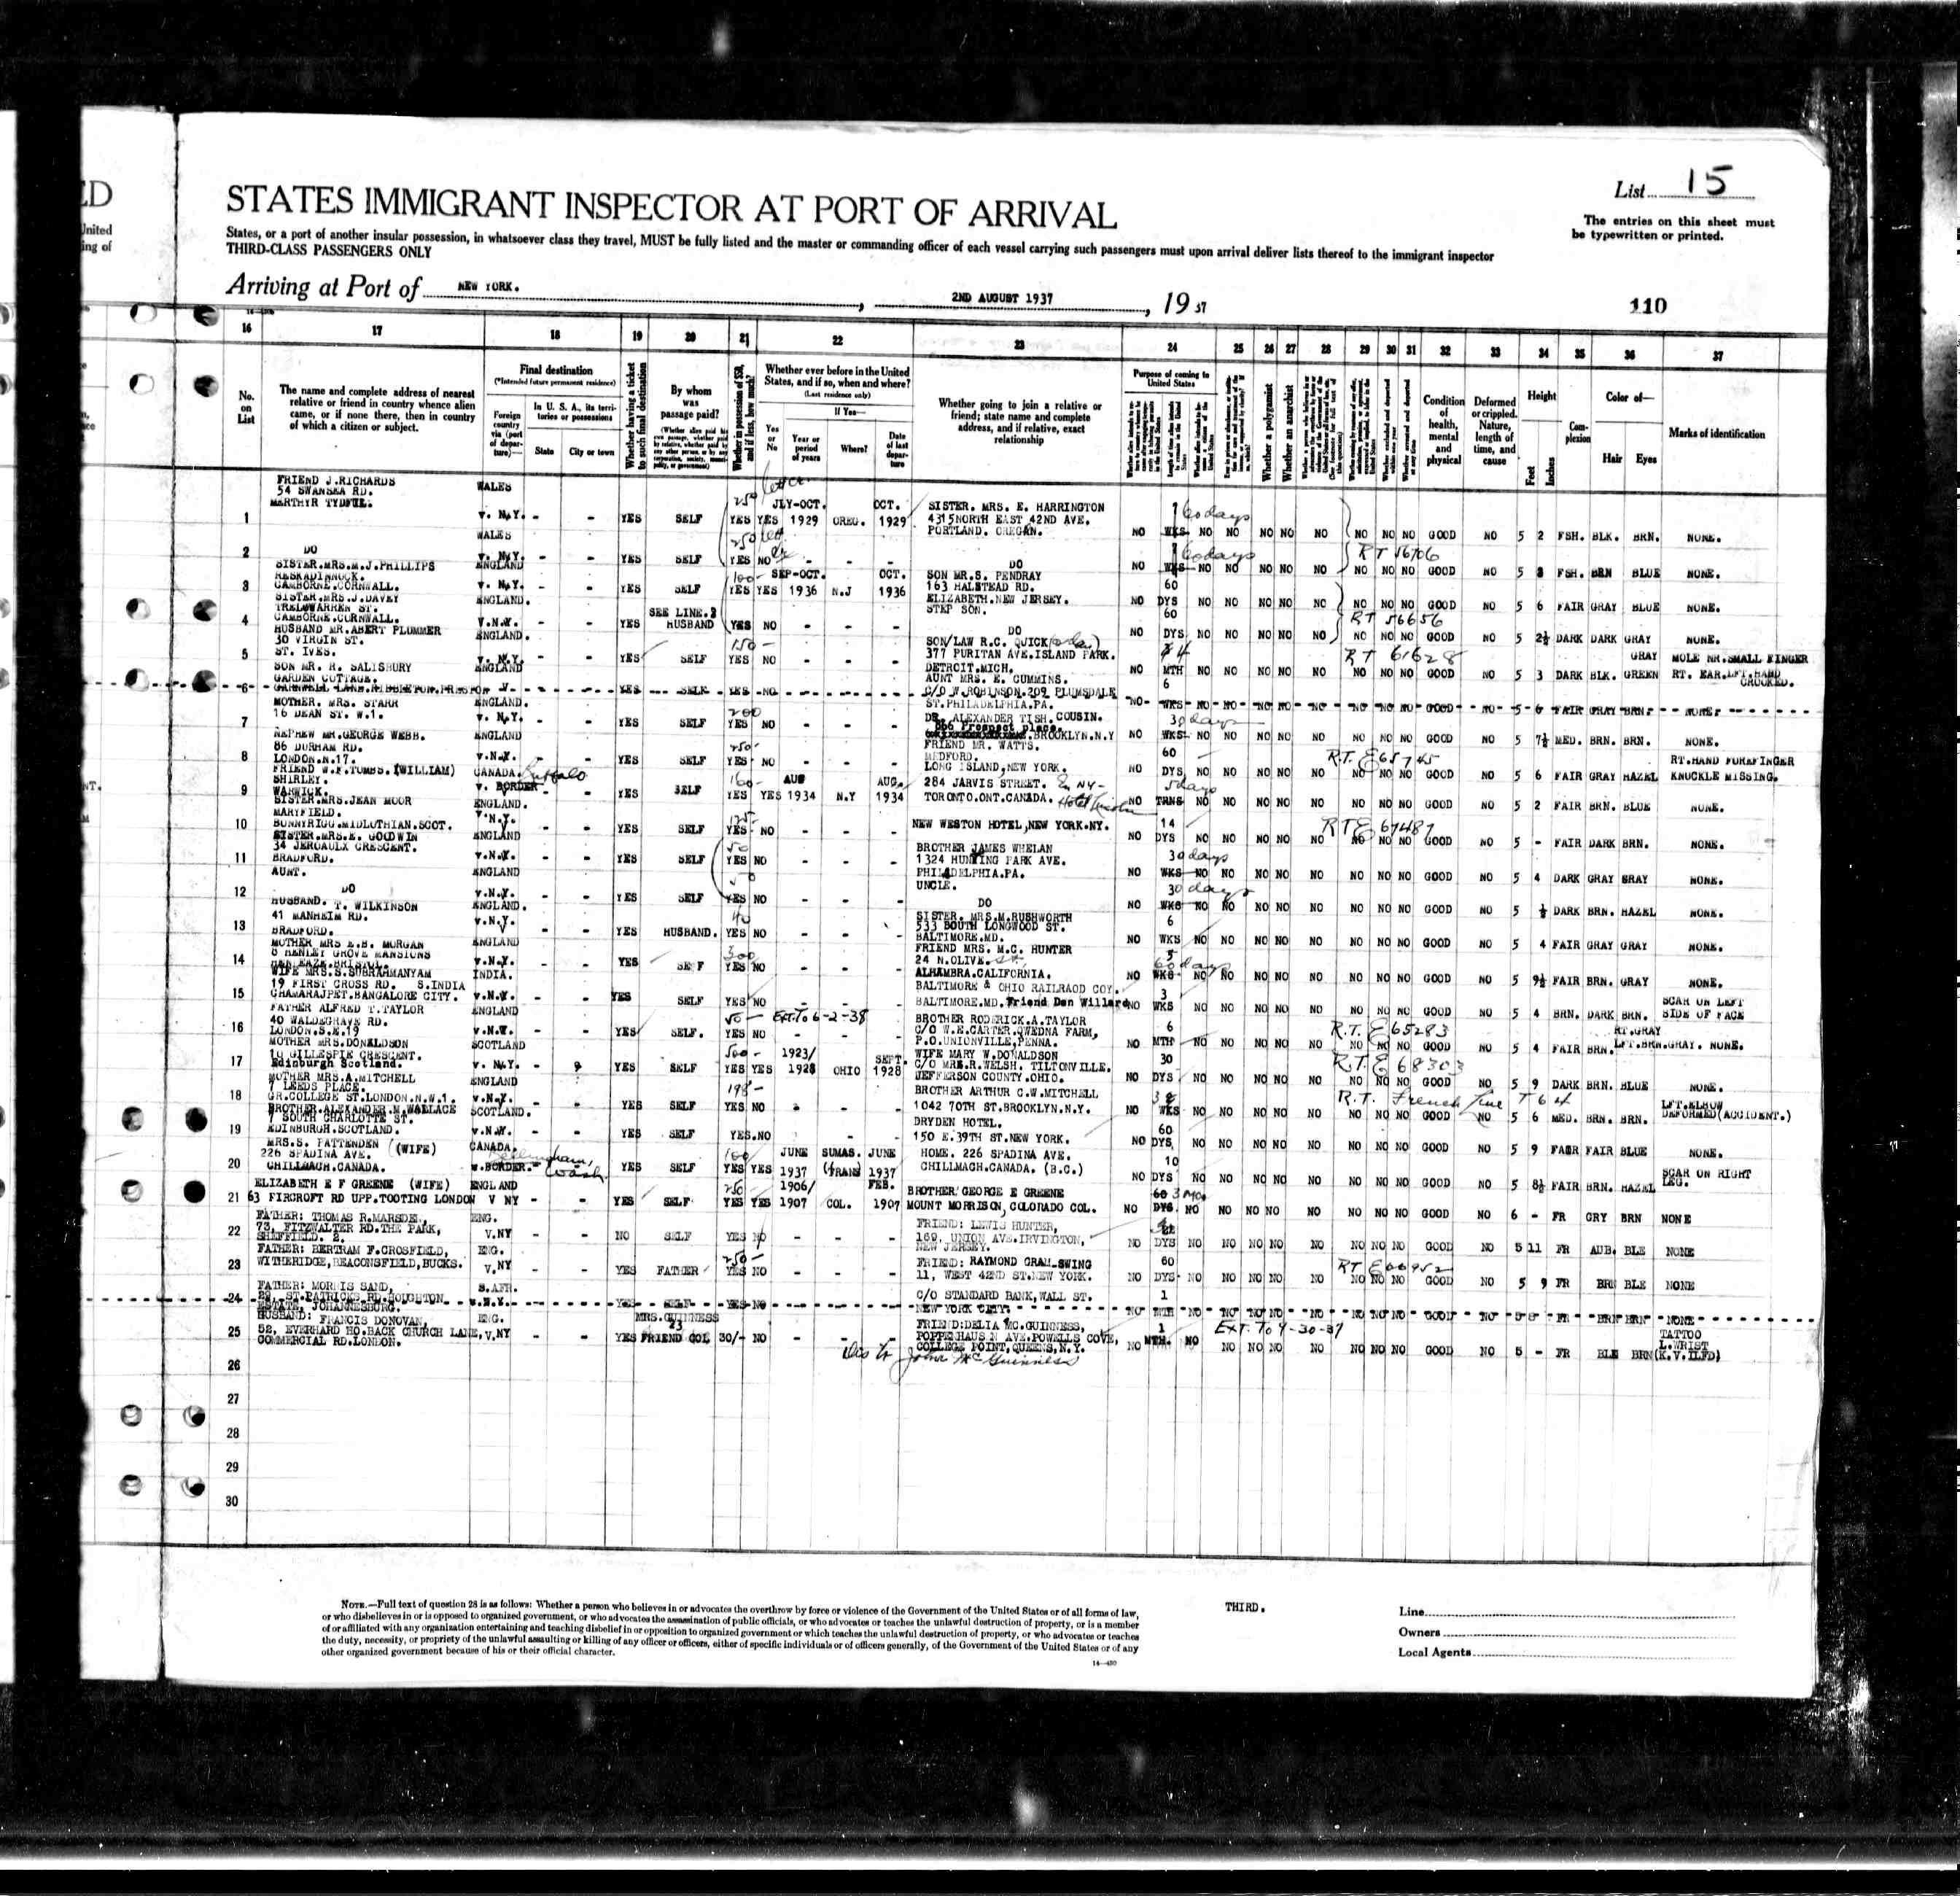 List 15
STATES IMMIGRANT INSPECTOR AT PORT OF ARRIVAL
The entries on this sheet must
be typewritten or printed.
States, or a port of another insular possession, in whatsoever class they travel, MUST be fully listed and the master or commanding officer of each vessel carrying such passengers must upon arrival deliver lists thereof to the immigrant inspector
THIRD-CLASS PASSENGERS ONLY
Arriving at Port of NEW YORK. , 2ND AUGUST 1937 , 19 37
110
16 17 18 19 20 21 22 23 24 25 26 27 28 29 30 31 32 33 34 35 36 37
No. on List
The name and complete address of nearest relative or friend in country whence alien came, or if none there, then in country of which a citizen or subject.
Final destination
(*Intended future permanent residence)
Foreign country via (port of departure)—
In U. S. A., its territories or possessions
State City or town
Whether having a ticket to such final destination
By whom was passage paid?
Whether in possession of $50, and if less, how much?
Whether ever before in the United States, and if so, when and where?
(Last residence only)
If Yes—
Yes or No
Year or period of years
Where?
Date of last departure
Whether going to join a relative or friend; state name and complete address, and if relative, exact relationship
Purpose of coming to United States
Whether a polygamist
Whether an anarchist
Condition of health, mental and physical
Deformed or crippled. Nature, length of time, and cause
Height
Feet Inches
Complexion
Color of—
Hair Eyes
Marks of identification
FRIEND J.RICHARDS
54 SWANSEA RD.
MARTHYR TYDFUL.
1 WALES v. N.Y. - - YES SELF YES YES JLY-OCT. 1929 OREG. OCT. 1929 SISTER. MRS. E. HARRINGTON
4315NORTH EAST 42ND AVE.
PORTLAND. OREGAN. NO WKS 60 days NO NO NO NO NO NO NO NO GOOD NO 5 2 FSH. BLK. BRN. NONE.
2 DO WALES v. N.Y. - - YES SELF YES NO - - - DO NO WKS 60 days NO NO NO NO NO RT 56706 NO NO NO GOOD NO 5 FSH. BRN BLUE NONE.
SISTER.MRS.M.J.PHILLIPS
CAMBORNE.CORNWALL.
3 ENGLAND v. N.Y. - - YES SELF 100- YES YES SEP-OCT. 1936 N.J OCT. 1936 SON MR.S. PENDRAY
163 HALSTEAD RD.
ELIZABETH.NEW JERSEY. NO 60 DYS NO NO NO NO NO NO NO NO GOOD NO 5 6 FAIR GRAY BLUE NONE.
SISTER.MRS.J.DAVEY
TRELOWARREN ST.
CAMBORNE.CORNWALL.
4 ENGLAND. V.N.Y. - YES SEE LINE.3 HUSBAND YES NO - - - STEP SON. DO NO 60 DYS NO NO NO NO NO RT 56656 NO NO NO GOOD NO 5 2½ DARK DARK GRAY NONE.
HUSBAND MR.ABERT PLUMMER
30 VIRGIN ST.
ST. IVES.
5 ENGLAND. v. N.Y. - - YES SELF 150- YES NO - - - SON/LAW R.C. QUICK
377 PURITAN AVE.ISLAND PARK.
DETROIT.MICH. NO 4 MTH NO NO NO NO NO RT 61628 NO NO NO GOOD NO 5 3 DARK BLK. GRAY GREEN MOLE NR.SMALL FINGER
RT. EAR.LFT.HAND
CROOKED.
SON MR. R. SALISBURY
GARDEN COTTAGE.
6 ENGLAND V. YES SELF YES NO AUNT MRS. E. CUMMINS.
C/O W.ROBINSON.209 PLUMSDALE
ST.PHILADELPHIA.PA. NO 6 WKS NO NO NO NO NO NO NO NO GOOD NO 5 6 FAIR GRAY BRN. NONE.
MOTHER. MRS. STARR
16 DEAN ST. W.1.
7 ENGLAND. v. N.Y. - - YES SELF 200 YES NO - - - DR. ALEXANDER TISH. COUSIN.
866 Prospect place.
BROOKLYN.N.Y NO 30 days WKS NO NO NO NO NO NO NO NO GOOD NO 5 7½ MED. BRN. BRN. NONE.
NEPHEW MR.GEORGE WEBB.
86 DURHAM RD.
LONDON.N.17.
8 ENGLAND v.N.Y. - - YES SELF 250- YES NO - - - FRIEND MR. WATTS.
MEDFORD.
LONG ISLAND,NEW YORK. NO 60 DYS NO NO NO NO NO R.T. E 65745 NO NO NO GOOD NO 5 6 FAIR GRAY HAZEL RT.HAND FOREFINGER
KNUCKLE MISSING.
FRIEND W.F.TOMBS. (WILLIAM)
SHIRLEY.
WARWICK.
9 CANADA. Buffalo v. BORDER - YES SELF 160- YES YES AUG 1934 N.Y AUG. 1934 284 JARVIS STREET. In NY-
TORONTO.ONT.CANADA. Hotel Lincoln NO 5 days TRNS NO NO NO NO NO NO NO NO GOOD NO 5 2 FAIR BRN. BLUE NONE.
SISTER.MRS.JEAN MOOR
MARYFIELD.
BONNYRIGG.MIDLOTHIAN.SCOT.
10 ENGLAND. V.N.Y. - - YES SELF 125- YES NO - - - NEW WESTON HOTEL,NEW YORK.NY. NO 14 DYS NO NO NO NO NO RT E 67487 NO NO NO GOOD NO 5 - FAIR DARK BRN. NONE.
SISTER.MRS.E. GOODWIN
34 JERGAULX CRESCENT.
BRADFORD.
11 ENGLAND v.N.Y. - - YES SELF 50 YES NO - - - BROTHER JAMES WHELAN
1324 HUNTING PARK AVE.
PHILADELPHIA.PA. NO 30 days WKS NO NO NO NO NO NO NO NO GOOD NO 5 4 DARK GRAY GRAY NONE.
AUNT.
12 DO ENGLAND v.N.Y. - - YES SELF 50 YES NO - - - UNCLE.
DO NO 30 days WKS NO NO NO NO NO NO NO NO GOOD NO 5 ½ DARK BRN. HAZEL NONE.
HUSBAND. T. WILKINSON
41 MANHEIM RD.
BRADFORD.
13 ENGLAND. v.N.Y. - - YES HUSBAND. 40 YES NO - - SISTER. MRS.M.RUSHWORTH
533 SOUTH LONGWOOD ST.
BALTIMORE.MD. NO 6 WKS NO NO NO NO NO NO NO NO GOOD NO 5 4 FAIR GRAY GRAY NONE.
MOTHER MRS E.B. MORGAN
8 HENLEY GROVE MANSIONS
14 ENGLAND v.N.Y. - - YES SELF 300 YES NO - - - FRIEND MRS. M.C. HUNTER
24 N.OLIVE. St.
ALHAMBRA.CALIFORNIA. NO 60 days WKS NO NO NO NO NO NO NO NO GOOD NO 5 9½ FAIR BRN. GRAY NONE.
WIFE MRS.S.SUBRAHMANYAM
19 FIRST CROSS RD. S.INDIA
CHAMARAJPET.BANGALORE CITY.
15 INDIA. v.N.Y. - - YES SELF YES NO - - - BALTIMORE & OHIO RAILRAOD COY.
BALTIMORE.MD. Friend Dan Willard NO 3 WKS NO NO NO NO NO NO NO NO GOOD NO 5 4 BRN. DARK BRN. SCAR ON LEFT
SIDE OF FACE
FATHER ALFRED T.TAYLOR
40 WALDEGRAVE RD.
LONDON.S.E.19
16 ENGLAND v.N.Y. - - YES SELF. 50- YES NO EXT. To 6-2-38 - - - BROTHER RODERICK.A.TAYLOR
C/O W.E.CARTER.QWEDNA FARM,
P.O.UNIONVILLE,PENNA. NO 6 MTH NO NO NO NO NO R.T. E 65283 NO NO NO GOOD NO 5 4 FAIR BRN. RT.GRAY
LFT.BRN.GRAY. NONE.
MOTHER MRS.DONALDSON
10 GILLESPIE CRESCENT.
Edinburgh Scotland.
17 SCOTLAND v. N.Y. - YES SELF 500- YES YES 1923/ 1928 OHIO SEPT. 1928 WIFE MARY W.DONALDSON
C/O MRS.R.WELSH. TILTONVILLE.
JEFFERSON COUNTY.OHIO. NO 30 DYS NO NO NO NO NO R.T. E 68303 NO NO NO GOOD NO 5 9 DARK BRN. BLUE NONE.
MOTHER MRS.A.MITCHELL
7 LEEDS PLACE.
GR.COLLEGE ST.LONDON.N.W.1.
18 ENGLAND v.N.Y. - - YES SELF 198- YES NO - - BROTHER ARTHUR C.W.MITCHELL
1042 70TH ST.BROOKLYN.N.Y. NO WKS NO NO NO NO NO R.T. French Line T 64 NO NO NO GOOD NO 5 6 MED. BRN. BRN. LFT.ELBOW
DEFORMED(ACCIDENT.)
BROTHER.ALEXANDER.N.WALLACE
7 SOUTH CHARLOTTE ST.
EDINBURGH.SCOTLAND.
19 SCOTLAND. v.N.Y. - - YES SELF YES.NO - - DRYDEN HOTEL.
150 E.39TH ST.NEW YORK. NO 60 DYS NO NO NO NO NO NO NO NO GOOD NO 5 9 FAIR FAIR BLUE NONE.
MRS.S. PATTENDEN (WIFE)
226 SPADINA AVE.
CHILLMACH.CANADA.
20 CANADA. v.BORDER.- Bellingham, Wash. YES SELF 100 YES YES JUNE 1937 SUMAS. (TRANS) JUNE 1937 HOME. 226 SPADINA AVE.
CHILLMACH.CANADA. (B.C.) NO 10 DYS NO NO NO NO NO NO NO NO GOOD NO 5 8½ FAIR BRN. HAZEL SCAR ON RIGHT
LEG.
ELIZABETH E F GREENE (WIFE)
21 63 FIRCROFT RD UPP.TOOTING LONDON ENGLAND V NY - - YES SELF 250 YES YES 1906/ 1907 COL. FEB. 1907 BROTHER GEORGE E GREENE
MOUNT MORRISON, COLORADO COL. NO 60 3 Mo. DYS. NO NO NO NO NO NO NO NO GOOD NO 6 - FR GRY BRN NONE
FATHER: THOMAS R.MARSDEN,
73, FITZWALTER RD.THE PARK,
SHEFFIELD. 2.
22 ENG. V.NY - - NO SELF YES NO - - - FRIEND: LEWIS HUNTER,
169, UNION AVE.IRVINGTON,
NEW JERSEY. NO DYS NO NO NO NO NO NO NO NO GOOD NO 5 11 FR AUB. BLE NONE
FATHER: BERTRAM F.CROSFIELD,
WITHERIDGE,BEACONSFIELD,BUCKS.
23 ENG. V.NY - - YES FATHER 250- YES NO - - - FRIEND: RAYMOND GRAM-SWING
11, WEST 42ND ST.NEW YORK. NO 60 DYS NO NO NO NO NO RT E 66952 NO NO NO GOOD NO 5 9 FR BRN BLE NONE
FATHER: MORRIS SAND,
ST.PATRICKS RD.HOUGHTON
ESTATE, JOHANNESBURG.
24 S.AFR. V.N.Y. YES SELF YES NO C/O STANDARD BANK,WALL ST.
NEW YORK CITY. NO 1 MTH NO NO NO NO NO NO NO NO GOOD NO 5 8 FR BRN BRN NONE
HUSBAND: FRANCIS DONOVAN,
52, EVERHARD HO.BACK CHURCH LANE,
COMMERCIAL RD.LONDON.
25 ENG. V.NY - - YES MRS.GUINNESS 23 FRIEND COL 30/- NO - - - FRIEND:DELIA MC.GUINNESS,
POPPENHAUS N AVE.POWELLS COVE,
COLLEGE POINT,QUEENS,N.Y. NO 1 MTH. NO EXT. To 9-30-37 NO NO NO NO NO NO NO GOOD NO 5 - FR BLE BRN TATTOO
L.WRIST
(K.V.ILFD)
Dis to John McGuinness
26
27
28
29
30
NOTE.—Full text of question 28 is as follows: Whether a person who believes in or advocates the overthrow by force or violence of the Government of the United States or of all forms of law,
or who disbelieves in or is opposed to organized government, or who advocates the assassination of public officials, or who advocates or teaches the unlawful destruction of property, or is a member
of or affiliated with any organization entertaining and teaching disbelief in or opposition to organized government or which teaches the unlawful destruction of property, or who advocates or teaches
the duty, necessity, or propriety of the unlawful assaulting or killing of any officer or officers, either of specific individuals or of officers generally, of the Government of the United States or of any
other organized government because of his or their official character.
14—480
THIRD.
Line
Owners
Local Agents